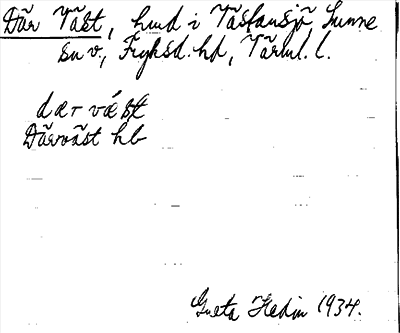 Där Väst, hmd i Västansjö Sunne
sn v, Fryksd. hd, Värml. l.
dær væst
Därväst hb
Greta Hedin 1934.